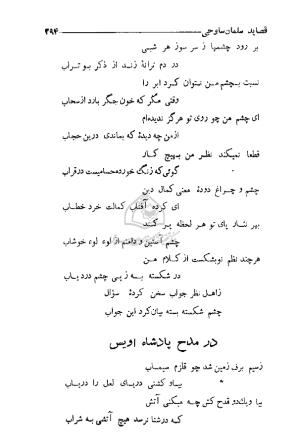 قصاید سلمان ساوجی ۳۹۴
بر رود چشمها ز سر سوز هر شبی
در دم ترانهٔ زند از ذکر بوتراب
نسبت بچشم من نتوان کرد ابر را
وقتی مگر که خون جگر بارد از سحاب
ای چشم من چو روی تو هرگز ندیده‌ام
از من چه دیدهٔ که بماندی درین حجاب
قطعا نمیکند نظر من بهیچ کار
گوئی که زنگ خورده حسامیست در قراب
چشم و چراغ دودهٔ معنی کمال دین
ای کرده آفتاب کمالت خرد خطاب
بهر نثار پای تو هر لحظه پر کند
چشم آستین و دامنم از لوء لوء خوشاب
هر چند نظم نوبشکست از کلام من
در شکسته به ز پی چشم دردیاب
ز اهل نظر جواب سخن کردهٔ سؤال
چشم شکسته بسته بیان کرد این جواب
در مدح پادشاه اویس
ز سیم برف زمین شد چو قلزم سیماب
بیاد کشتی دریای لعل را دریاب
بیا و یک دو قدح کش چه میکنی آتش
که در شتا نرسد هیچ آتشی به شراب